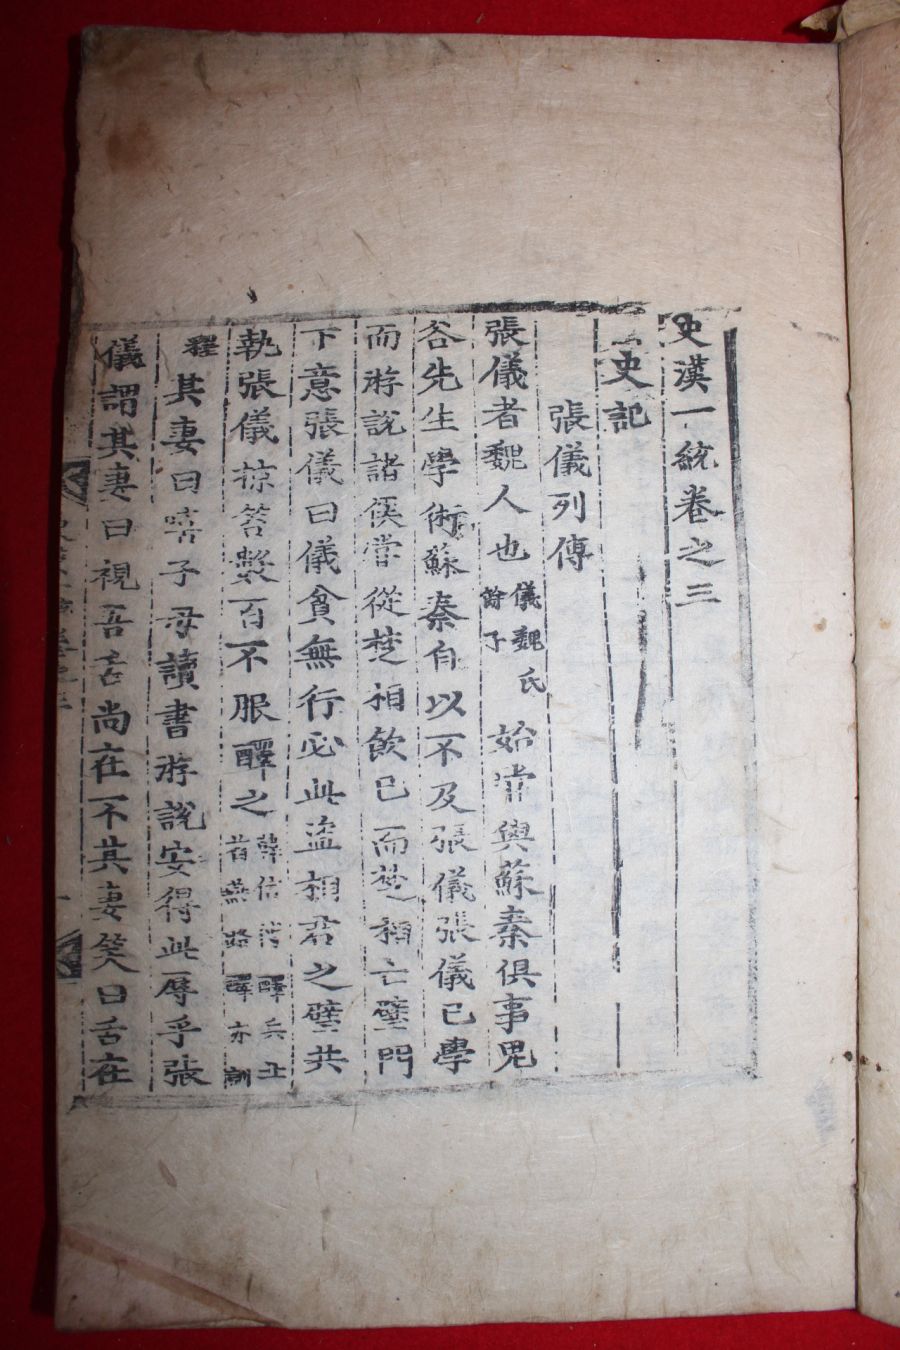 史漢一統卷之三
史記
張儀列傳
張儀者魏人也儀魏氏餘子始嘗與蘇秦俱事鬼
谷先生學術蘇秦自以不及張儀張儀已學
而游說諸侯嘗從楚相飲已而楚相亡璧門
下意張儀曰儀貧無行必此盜相君之璧共
執張儀掠笞數百不服醳之韓信傳醳兵北首燕路醳亦訓
釋其妻曰嘻子毋讀書游說安得此辱乎張
儀謂其妻曰視吾舌尚在不其妻笑曰舌在